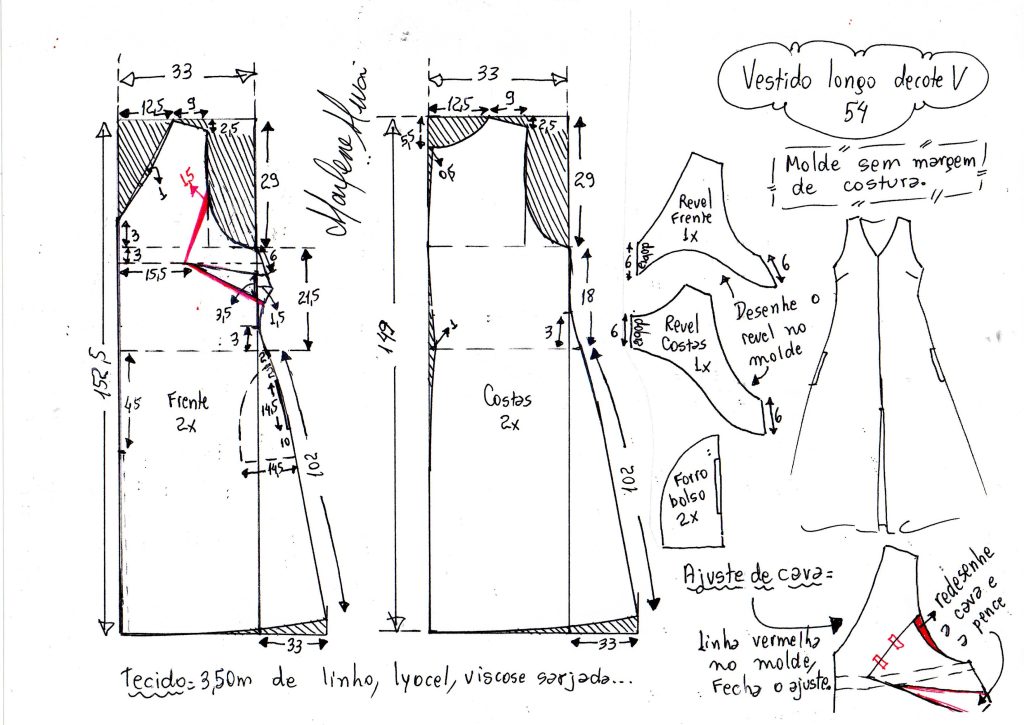 Vestido longo decote V
54
Molde sem margem
de costura.
33
12,5
9
2,5
29
1,5
1
3
3
15,5
6
3,5
1,5
21,5
3
152,5
Frente
2x
45
14,5
10
14,5
102
33
Marlene
33
12,5
9
5,5
2,5
0,5
29
18
3
149
1
Costas
2x
102
33
Revel
Frente
1x
dobra
6
6
Desenhe o
revel no
molde
Revel
Costas
1x
dobra
6
6
Forro
bolso
2x
Ajuste de cava=
Linha vermelha
no molde,
Fecha o ajuste.
redesenhe
a cava e
a pence
Tecido= 3,50m de linho, lyocel, viscose sarjada...